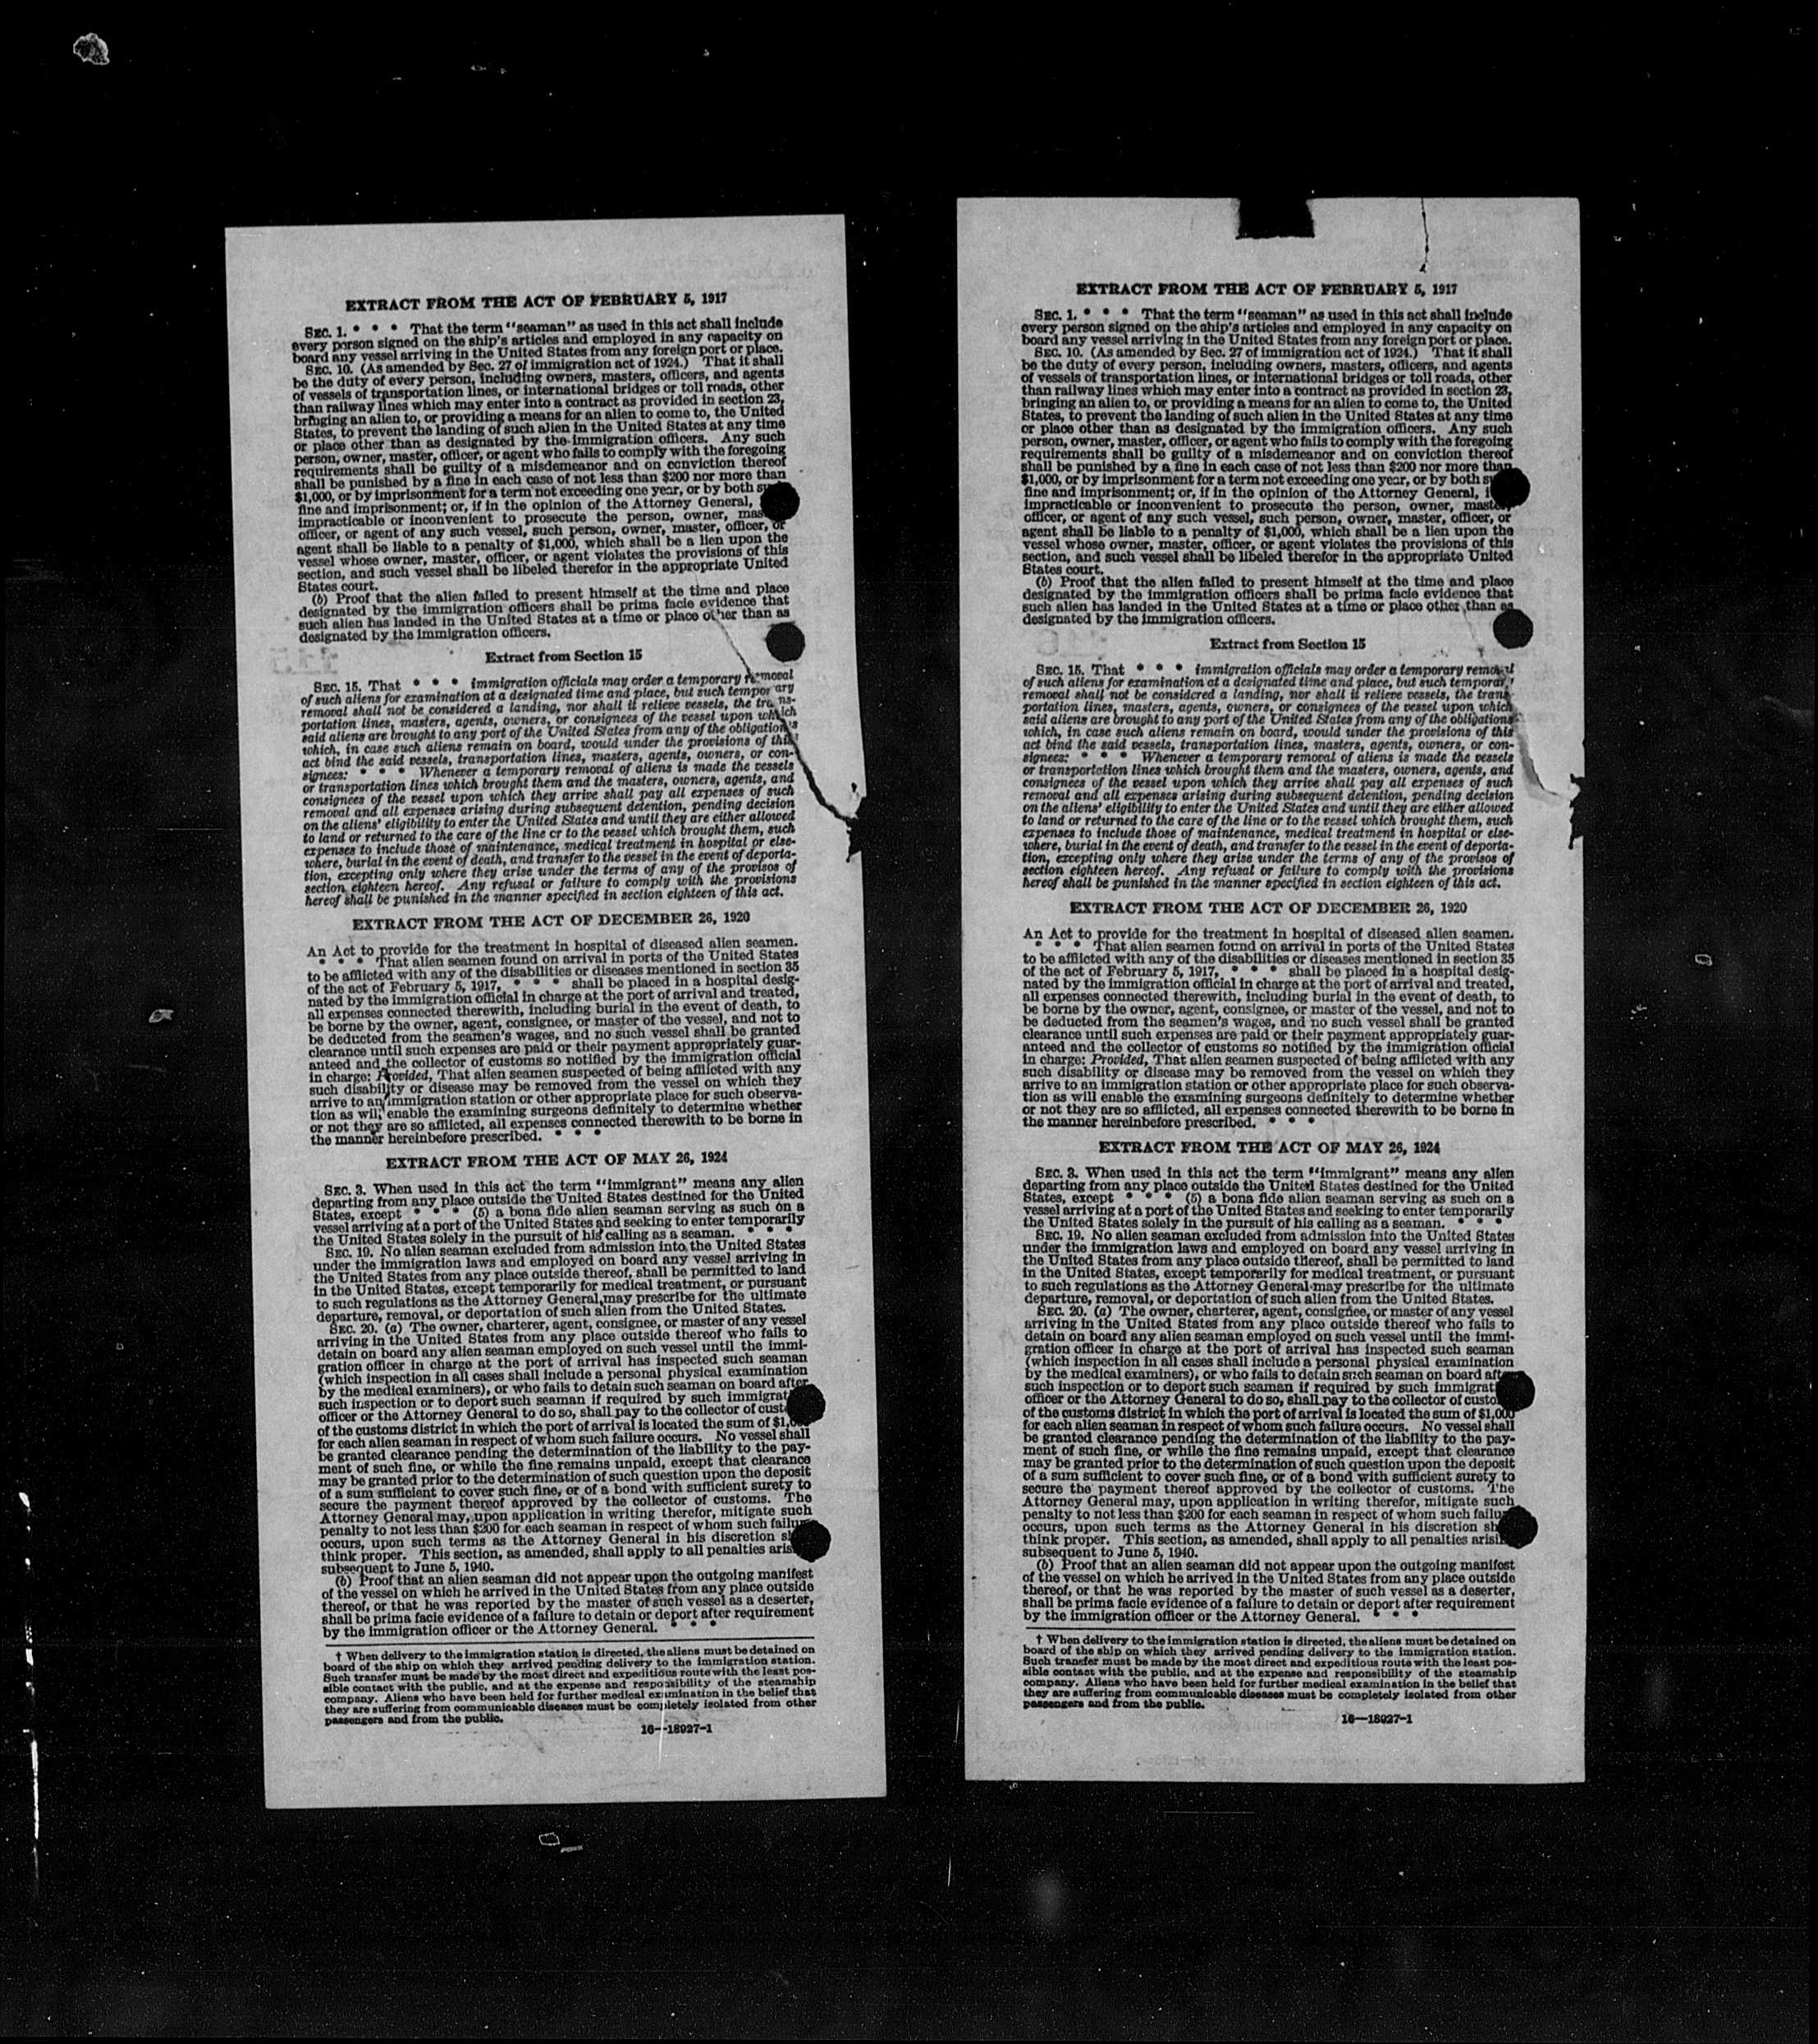 EXTRACT FROM THE ACT OF FEBRUARY 5, 1917
SEC. 1. * * * That the term "seaman" as used in this act shall include
every person signed on the ship's articles and employed in any capacity on
board any vessel arriving in the United States from any foreign port or place.
SEC. 10. (As amended by Sec. 27 of immigration act of 1924.) That it shall
be the duty of every person, including owners, masters, officers, and agents
of vessels of transportation lines, or international bridges or toll roads, other
than railway lines which may enter into a contract as provided in section 23,
bringing an alien to, or providing a means for an alien to come to, the United
States, to prevent the landing of such alien in the United States at any time
or place other than as designated by the immigration officers. Any such
person, owner, master, officer, or agent who fails to comply with the foregoing
requirements shall be guilty of a misdemeanor and on conviction thereof
shall be punished by a fine in each case of not less than $200 nor more than
$1,000, or by imprisonment for a term not exceeding one year, or by both
fine and imprisonment; or, if in the opinion of the Attorney General,
impracticable or inconvenient to prosecute the person, owner, mas
officer, or agent of any such vessel, such person, owner, master, officer, or
agent shall be liable to a penalty of $1,000, which shall be a lien upon the
vessel whose owner, master, officer, or agent violates the provisions of this
section, and such vessel shall be libeled therefor in the appropriate United
States court.
(b) Proof that the alien failed to present himself at the time and place
designated by the immigration officers shall be prima facie evidence that
such alien has landed in the United States at a time or place other than as
designated by the immigration officers.
Extract from Section 15
SEC. 15. That * * * immigration officials may order a temporary removal
of such aliens for examination at a designated time and place, but such temporary
removal shall not be considered a landing, nor shall it relieve vessels, the trans-
portation lines, masters, agents, owners, or consignees of the vessel upon which
said aliens are brought to any port of the United States from any of the obligations
which, in case such aliens remain on board, would under the provisions of this
act bind the said vessels, transportation lines, masters, agents, owners, or con-
signees: * * * Whenever a temporary removal of aliens is made the vessels
or transportation lines which brought them and the masters, owners, agents, and
consignees of the vessel upon which they arrive shall pay all expenses of such
removal and all expenses arising during subsequent detention, pending decision
on the aliens' eligibility to enter the United States and until they are either allowed
to land or returned to the care of the line or to the vessel which brought them, such
expenses to include those of maintenance, medical treatment in hospital or else-
where, burial in the event of death, and transfer to the vessel in the event of deporta-
tion, excepting only where they arise under the terms of any of the provisos of
section eighteen hereof. Any refusal or failure to comply with the provisions
hereof shall be punished in the manner specified in section eighteen of this act.
EXTRACT FROM THE ACT OF DECEMBER 26, 1920
An Act to provide for the treatment in hospital of diseased alien seamen.
* * * That alien seamen found on arrival in ports of the United States
to be afflicted with any of the disabilities or diseases mentioned in section 35
of the act of February 5, 1917, * * * shall be placed in a hospital desig-
nated by the immigration official in charge at the port of arrival and treated,
all expenses connected therewith, including burial in the event of death, to
be borne by the owner, agent, consignee, or master of the vessel, and not to
be deducted from the seamen's wages, and no such vessel shall be granted
clearance until such expenses are paid or their payment appropriately guar-
anteed and the collector of customs so notified by the immigration official
in charge: Provided, That alien seamen suspected of being afflicted with any
such disability or disease may be removed from the vessel on which they
arrive to an immigration station or other appropriate place for such observa-
tion as will enable the examining surgeons definitely to determine whether
or not they are so afflicted, all expenses connected therewith to be borne in
the manner hereinbefore prescribed. * * *
EXTRACT FROM THE ACT OF MAY 26, 1924
SEC. 3. When used in this act the term "immigrant" means any alien
departing from any place outside the United States destined for the United
States, except * * * (5) a bona fide alien seaman serving as such on a
vessel arriving at a port of the United States and seeking to enter temporarily
the United States solely in the pursuit of his calling as a seaman. * * *
SEC. 19. No alien seaman excluded from admission into the United States
under the immigration laws and employed on board any vessel arriving in
the United States from any place outside thereof, shall be permitted to land
in the United States, except temporarily for medical treatment, or pursuant
to such regulations as the Attorney General may prescribe for the ultimate
departure, removal, or deportation of such alien from the United States.
SEC. 20. (a) The owner, charterer, agent, consignee, or master of any vessel
arriving in the United States from any place outside thereof who fails to
detain on board any alien seaman employed on such vessel until the immi-
gration officer in charge at the port of arrival has inspected such seaman
(which inspection in all cases shall include a personal physical examination
by the medical examiners), or who fails to detain such seaman on board after
such inspection or to deport such seaman if required by such immigrat
officer or the Attorney General to do so, shall pay to the collector of cust
of the customs district in which the port of arrival is located the sum of $1,000
for each alien seaman in respect of whom such failure occurs. No vessel shall
be granted clearance pending the determination of the liability to the pay-
ment of such fine, or while the fine remains unpaid, except that clearance
may be granted prior to the determination of such question upon the deposit
of a sum sufficient to cover such fine, or of a bond with sufficient surety to
secure the payment thereof approved by the collector of customs. The
Attorney General may, upon application in writing therefor, mitigate such
penalty to not less than $200 for each seaman in respect of whom such failu
occurs, upon such terms as the Attorney General in his discretion s
think proper. This section, as amended, shall apply to all penalties aris
subsequent to June 5, 1940.
(b) Proof that an alien seaman did not appear upon the outgoing manifest
of the vessel on which he arrived in the United States from any place outside
thereof, or that he was reported by the master of such vessel as a deserter,
shall be prima facie evidence of a failure to detain or deport after requirement
by the immigration officer or the Attorney General. * * *
† When delivery to the immigration station is directed, the aliens must be detained on
board of the ship on which they arrived pending delivery to the immigration station.
Such transfer must be made by the most direct and expeditious route with the least pos-
sible contact with the public, and at the expense and responsibility of the steamship
company. Aliens who have been held for further medical examination in the belief that
they are suffering from communicable diseases must be completely isolated from other
passengers and from the public.
16—18927-1
EXTRACT FROM THE ACT OF FEBRUARY 5, 1917
SEC. 1. * * * That the term "seaman" as used in this act shall include
every person signed on the ship's articles and employed in any capacity on
board any vessel arriving in the United States from any foreign port or place.
SEC. 10. (As amended by Sec. 27 of immigration act of 1924.) That it shall
be the duty of every person, including owners, masters, officers, and agents
of vessels of transportation lines, or international bridges or toll roads, other
than railway lines which may enter into a contract as provided in section 23,
bringing an alien to, or providing a means for an alien to come to, the United
States, to prevent the landing of such alien in the United States at any time
or place other than as designated by the immigration officers. Any such
person, owner, master, officer, or agent who fails to comply with the foregoing
requirements shall be guilty of a misdemeanor and on conviction thereof
shall be punished by a fine in each case of not less than $200 nor more than
$1,000, or by imprisonment for a term not exceeding one year, or by both s
fine and imprisonment; or, if in the opinion of the Attorney General, i
impracticable or inconvenient to prosecute the person, owner, master,
officer, or agent of any such vessel, such person, owner, master, officer, or
agent shall be liable to a penalty of $1,000, which shall be a lien upon the
vessel whose owner, master, officer, or agent violates the provisions of this
section, and such vessel shall be libeled therefor in the appropriate United
States court.
(b) Proof that the alien failed to present himself at the time and place
designated by the immigration officers shall be prima facie evidence that
such alien has landed in the United States at a time or place other than as
designated by the immigration officers.
Extract from Section 15
SEC. 15. That * * * immigration officials may order a temporary removal
of such aliens for examination at a designated time and place, but such temporary
removal shall not be considered a landing, nor shall it relieve vessels, the trans-
portation lines, masters, agents, owners, or consignees of the vessel upon which
said aliens are brought to any port of the United States from any of the obligations
which, in case such aliens remain on board, would under the provisions of this
act bind the said vessels, transportation lines, masters, agents, owners, or con-
signees: * * * Whenever a temporary removal of aliens is made the vessels
or transportation lines which brought them and the masters, owners, agents, and
consignees of the vessel upon which they arrive shall pay all expenses of such
removal and all expenses arising during subsequent detention, pending decision
on the aliens' eligibility to enter the United States and until they are either allowed
to land or returned to the care of the line or to the vessel which brought them, such
expenses to include those of maintenance, medical treatment in hospital or else-
where, burial in the event of death, and transfer to the vessel in the event of deporta-
tion, excepting only where they arise under the terms of any of the provisos of
section eighteen hereof. Any refusal or failure to comply with the provisions
hereof shall be punished in the manner specified in section eighteen of this act.
EXTRACT FROM THE ACT OF DECEMBER 26, 1920
An Act to provide for the treatment in hospital of diseased alien seamen.
* * * That alien seamen found on arrival in ports of the United States
to be afflicted with any of the disabilities or diseases mentioned in section 35
of the act of February 5, 1917, * * * shall be placed in a hospital desig-
nated by the immigration official in charge at the port of arrival and treated,
all expenses connected therewith, including burial in the event of death, to
be borne by the owner, agent, consignee, or master of the vessel, and not to
be deducted from the seamen's wages, and no such vessel shall be granted
clearance until such expenses are paid or their payment appropriately guar-
anteed and the collector of customs so notified by the immigration official
in charge: Provided, That alien seamen suspected of being afflicted with any
such disability or disease may be removed from the vessel on which they
arrive to an immigration station or other appropriate place for such observa-
tion as will enable the examining surgeons definitely to determine whether
or not they are so afflicted, all expenses connected therewith to be borne in
the manner hereinbefore prescribed. * * *
EXTRACT FROM THE ACT OF MAY 26, 1924
SEC. 3. When used in this act the term "immigrant" means any alien
departing from any place outside the United States destined for the United
States, except * * * (5) a bona fide alien seaman serving as such on a
vessel arriving at a port of the United States and seeking to enter temporarily
the United States solely in the pursuit of his calling as a seaman. * * *
SEC. 19. No alien seaman excluded from admission into the United States
under the immigration laws and employed on board any vessel arriving in
the United States from any place outside thereof, shall be permitted to land
in the United States, except temporarily for medical treatment, or pursuant
to such regulations as the Attorney General may prescribe for the ultimate
departure, removal, or deportation of such alien from the United States.
SEC. 20. (a) The owner, charterer, agent, consignee, or master of any vessel
arriving in the United States from any place outside thereof who fails to
detain on board any alien seaman employed on such vessel until the immi-
gration officer in charge at the port of arrival has inspected such seaman
(which inspection in all cases shall include a personal physical examination
by the medical examiners), or who fails to detain such seaman on board after
such inspection or to deport such seaman if required by such immigrat
officer or the Attorney General to do so, shall pay to the collector of custo
of the customs district in which the port of arrival is located the sum of $1,000
for each alien seaman in respect of whom such failure occurs. No vessel shall
be granted clearance pending the determination of the liability to the pay-
ment of such fine, or while the fine remains unpaid, except that clearance
may be granted prior to the determination of such question upon the deposit
of a sum sufficient to cover such fine, or of a bond with sufficient surety to
secure the payment thereof approved by the collector of customs. The
Attorney General may, upon application in writing therefor, mitigate such
penalty to not less than $200 for each seaman in respect of whom such failu
occurs, upon such terms as the Attorney General in his discretion sh
think proper. This section, as amended, shall apply to all penalties arisi
subsequent to June 5, 1940.
(b) Proof that an alien seaman did not appear upon the outgoing manifest
of the vessel on which he arrived in the United States from any place outside
thereof, or that he was reported by the master of such vessel as a deserter,
shall be prima facie evidence of a failure to detain or deport after requirement
by the immigration officer or the Attorney General. * * *
† When delivery to the immigration station is directed, the aliens must be detained on
board of the ship on which they arrived pending delivery to the immigration station.
Such transfer must be made by the most direct and expeditious route with the least pos-
sible contact with the public, and at the expense and responsibility of the steamship
company. Aliens who have been held for further medical examination in the belief that
they are suffering from communicable diseases must be completely isolated from other
passengers and from the public.
16—18927-1